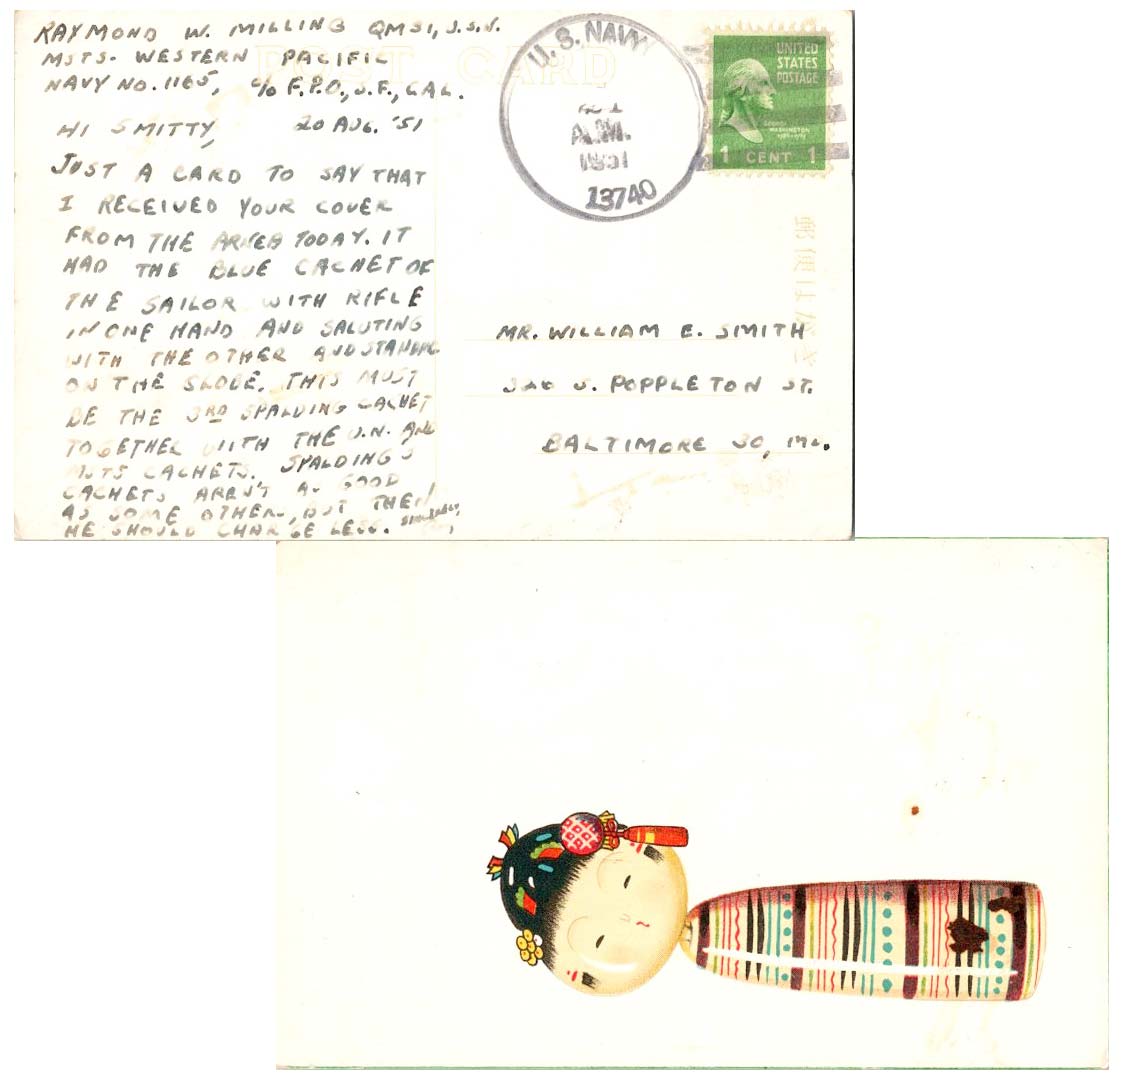 RAYMOND W. MILLING QMS1, U.S.N.
MSTS. WESTERN PACIFIC
NAVY NO. 1165, c/o F.P.O., S.F., CAL.
POST CARD
HI SMITTY, 20 AUG. '51
JUST A CARD TO SAY THAT
I RECEIVED YOUR COVER
FROM THE AREA TODAY. IT
HAD THE BLUE CACHET OF
THE SAILOR WITH RIFLE
IN ONE HAND AND SALUTING
WITH THE OTHER AND STANDING
ON THE GLOBE. THIS MUST
BE THE 3RD SPALDING CACHET
TOGETHER WITH THE U.N. AND
MSTS CACHETS. SPALDING'S
CACHETS AREN'T AS GOOD
AS SOME OTHERS, BUT THEN
HE SHOULD CHARGE LESS.
U.S. NAVY
A.M.
1951
13740
UNITED
STATES
POSTAGE
GEORGE
WASHINGTON
1 CENT 1
MR. WILLIAM E. SMITH
S. POPPLETON ST.
BALTIMORE 30, MD.